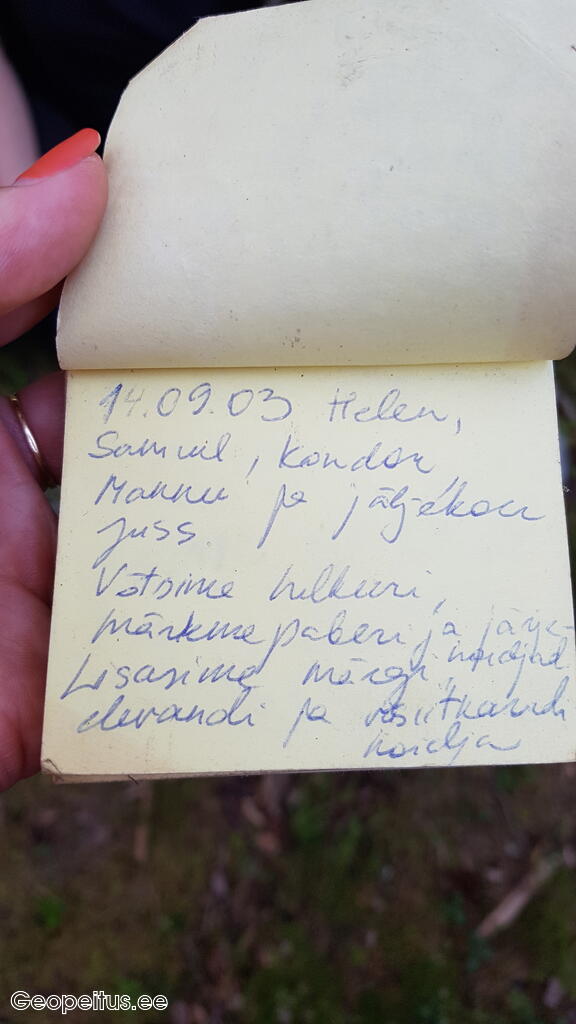 14.09.03 Helen,
Samuel, Kondor,
Mannu ja jäljekoer
Juss.
Võtsime helkuri,
märkmepaberi ja järje-
hoidjad
Lisasime märgi,
elevandi ja visiitkaardi
hoidja
Geopeitus.ee